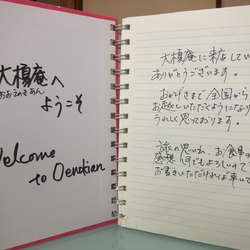 大榎庵へ
おおえのきあん
ようこそ
Welcome
to Oenokian
大榎庵に来店してい
ありがとうございます。
おかげさまで全国から
お越しいただくようになり
うれしく思っております。
お食事の
感想 何でもよろしいので
お書きいただければ幸いで